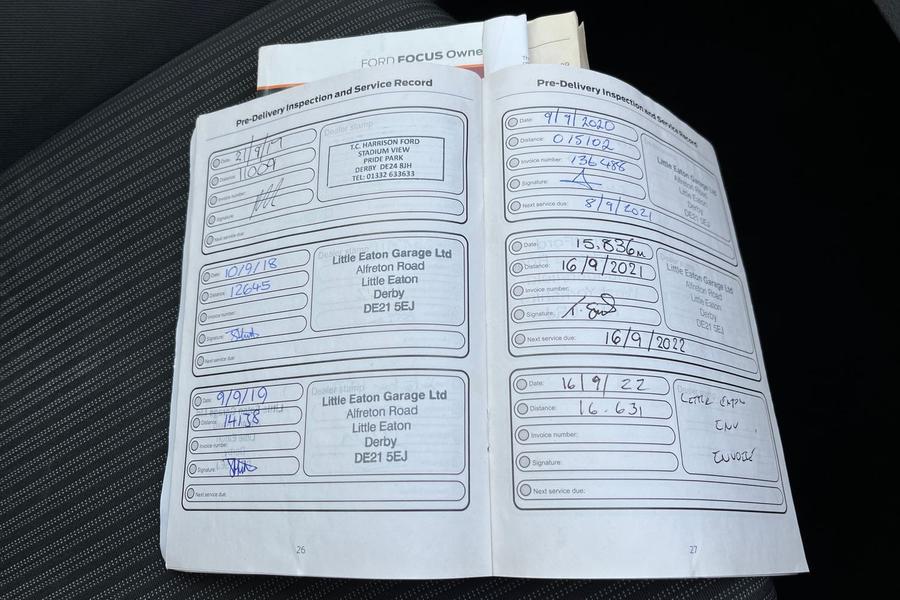 FORD FOCUS Owne
Pre-Delivery Inspection and Service Record
Date: 2/9/17
Distance: 11009
Invoice number:
Signature:
Next service due:
Dealer stamp
T.C. HARRISON FORD
STADIUM VIEW
PRIDE PARK
DERBY DE24 8JH
TEL: 01332 633633
Date: 10/9/18
Distance: 12645
Invoice number:
Signature:
Next service due:
Dealer stamp
Little Eaton Garage Ltd
Alfreton Road
Little Eaton
Derby
DE21 5EJ
Date: 9/9/19
Distance: 14138
Invoice number:
Signature:
Next service due:
Dealer stamp
Little Eaton Garage Ltd
Alfreton Road
Little Eaton
Derby
DE21 5EJ
26
Pre-Delivery Inspection and Service Record
Date: 9/9/2020
Distance: 015102
Invoice number: 136486
Signature:
Next service due: 8/9/2021
Little Eaton Garage Ltd
Alfreton Road
Little Eaton
Derby
DE21 5EJ
Date: 15,836m
Distance: 16/9/2021
Invoice number:
Signature:
Next service due: 16/9/2022
Little Eaton Garage Ltd
Alfreton Road
Little Eaton
Derby
DE21 5EJ
Date: 16/9/22
Distance: 16.631
Invoice number:
Signature:
Next service due:
Dealer
LITTLE EATON
INV
INVOICE
27